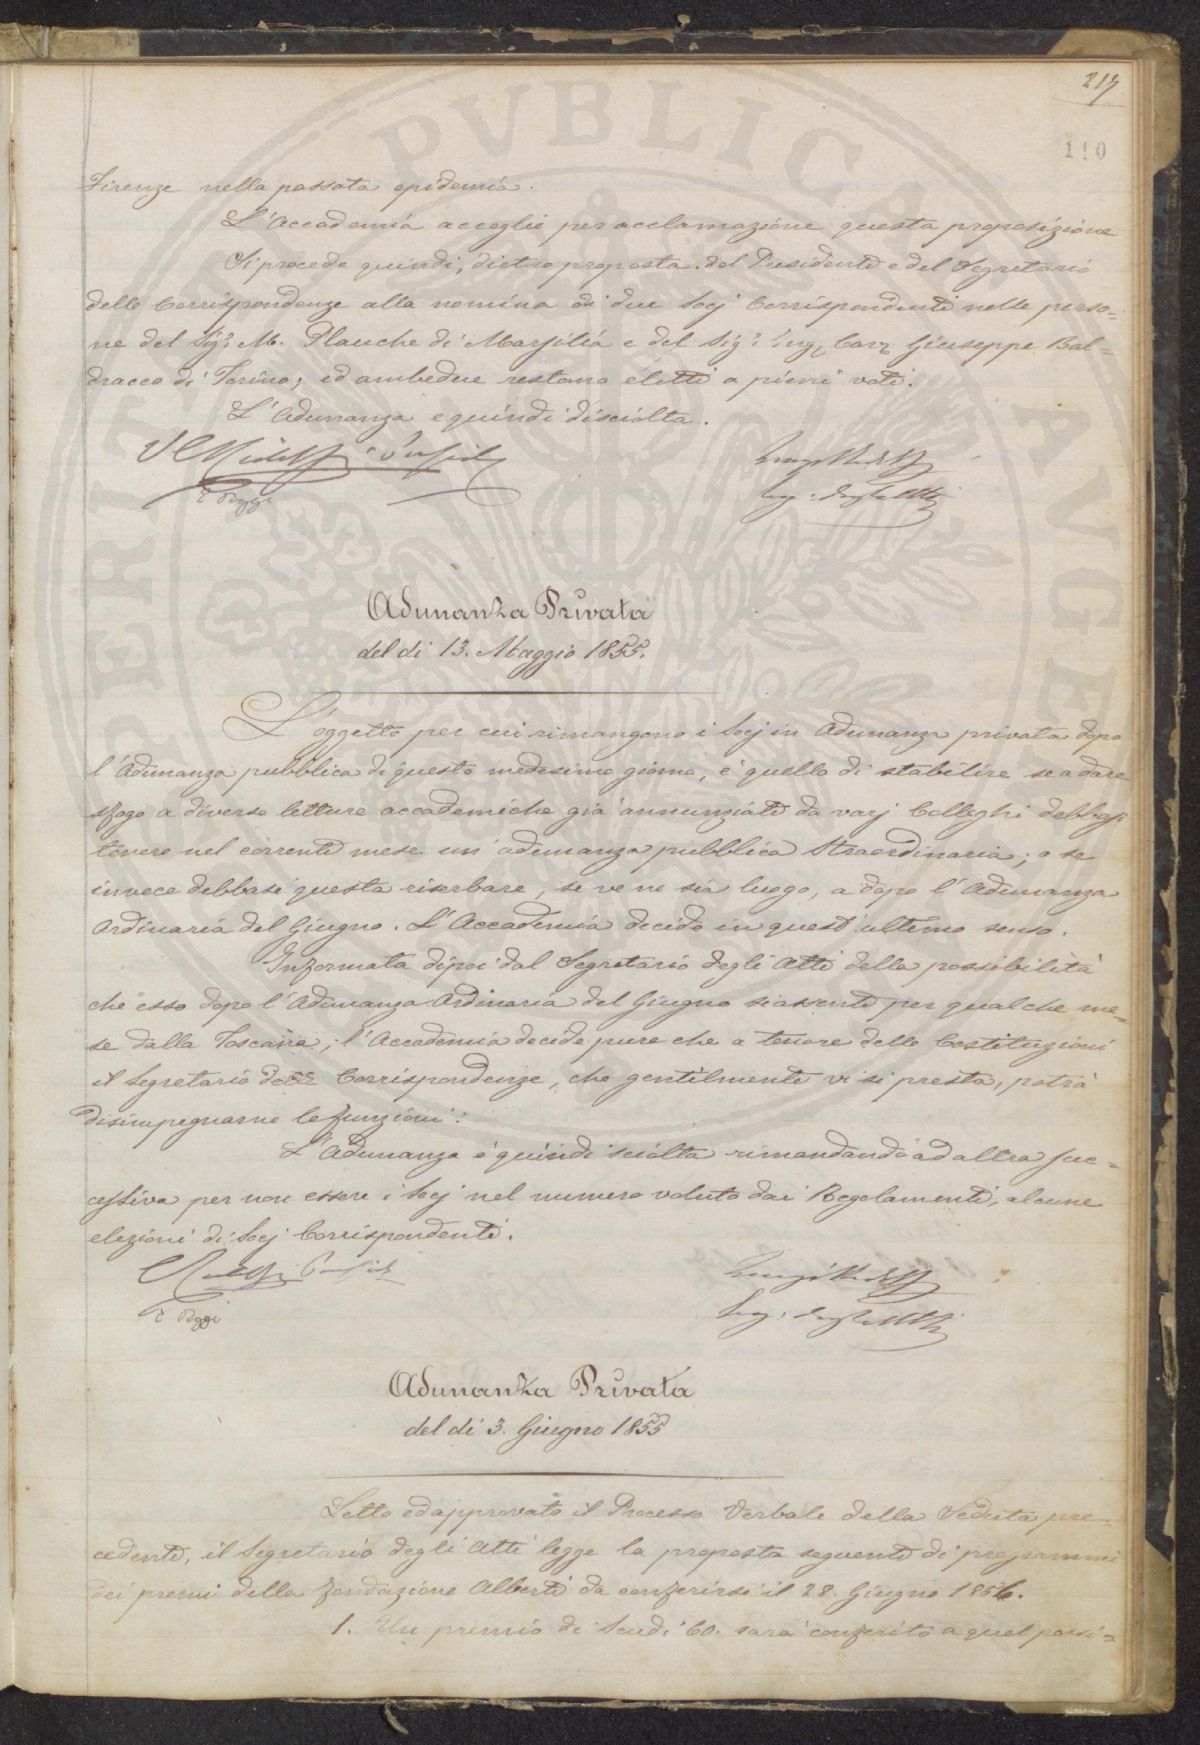 217
110
Firenze nella passata epidemia.
L'Accademia accoglie per acclamazione questa proposizione
Si procede quindi, dietro proposta del Presidente e del Segretario
delle Corrispondenze alla nomina di due Socj Corrispondenti nelle perso=
ne del Sigr. M. Plauche di Marsilia e del Sigr. Ing. Cav. Giuseppe Bal=
dracco di Torino; ed ambedue restano eletti a pieni voti.
L'Adunanza e quindi disciolta.
E Poggi
Adunanza Privata
del dì 13. Maggio 1855.
L'oggetto per cui rimangono i Socj in Adunanza privata dopo
l'Adunanza pubblica di questo medesimo giorno, è quello di stabilire se a dare
sfogo a diverse letture accademiche già annunziate da varj Colleghi debbasi
tenere nel corrente mese un'adunanza pubblica Straordinaria; o se
invece debbasi questa riserbare, se ve ne sia luogo, a dopo l'Adunanza
Ordinaria del Giugno. L'Accademia decide in quest'ultimo senso.
Informata dipoi dal Segretario degli Atti della possibilità
che esso dopo l'Adunanza Ordinaria del Giugno si assenti per qualche me=
se dalla Toscana; l'Accademia decide pure che a tenore delle Costituzioni
il Segretario delle Corrispondenze, che gentilmente vi si presta, potrà
disimpegnarne le funzioni.
L'Adunanza è quindi sciolta rimandando ad altra suc=
cessiva per non essere i Socj nel numero voluto dai Regolamenti, alcune
elezioni di Socj Corrispondenti.
E Poggi
Adunanza Privata
del dì 3. Giugno 1855
Letto ed approvato il Processo Verbale della Seduta pre=
cedente, il Segretario degli Atti legge la proposta seguente di programmi
dei premi della fondazione Alberti da conferirsi il 28. Giugno 1856.
1. Un premio di Scudi 60. sarà conferito a quel possi=
PVBLICA